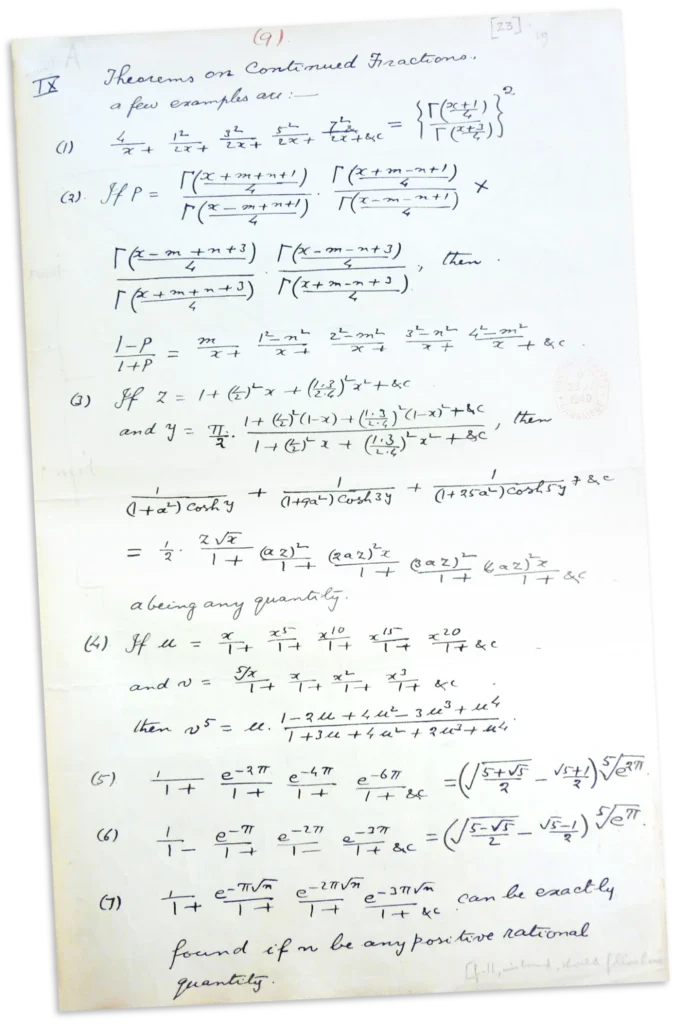 (9).
[23]
IX Theorems on Continued Fractions.
a few examples are :—
(1) 4/x + 1²/2x + 3²/2x + 5²/2x + 7²/2x + &c = {Γ(x+1/4)/Γ(x+3/4)}²
(2). If P = Γ(x+m+n+1/4)/Γ(x-m+n+1/4) · Γ(x+m-n+1/4)/Γ(x-m-n+1/4) ×
Γ(x-m+n+3/4)/Γ(x+m+n+3/4) · Γ(x-m-n+3)/4)/Γ(x+m-n+3/4), then
1-P/1+P = m/x + 1²-n²/x + 2²-m²/x + 3²-n²/x + 4²-m²/x + &c
(3) If Z = 1 + (1/2)²x + (1.3/2.4)²x² + &c
and y = π/2 · 1+(1/2)²(1-x)+(1.3/2.4)²(1-x)²+&c/1+(1/2)²x+(1.3/2.4)²x²+&c, then
1/(1+a²)Cosh y + 1/(1+9a²)Cosh 3y + 1/(1+25a²)Cosh 5y + &c
= 1/2 · Z√x/1 + (aZ)²/1 + (2aZ)²x/1 + (3aZ)²/1 + (4aZ)²x/1 + &c
a being any quantity.
(4) If u = x/1 + x⁵/1 + x¹⁰/1 + x¹⁵/1 + x²⁰/1 + &c
and v = ⁵√x/1 + x/1 + x²/1 + x³/1 + &c
then v⁵ = u · 1-2u+4u²-3u³+u⁴/1+3u+4u²+2u³+u⁴.
(5) 1/1 + e^-2π/1 + e^-4π/1 + e^-6π/1 + &c = (√5+√5/2 - √5+1/2) ⁵√e^2π.
(6) 1/1 - e^-π/1 + e^-2π/1 - e^-3π/1 + &c = (√5-√5/2 - √5-1/2) ⁵√e^π.
(7) 1/1 + e^-π√n/1 + e^-2π√n/1 + e^-3π√n/1 + &c can be exactly
found if n be any positive rational
quantity.